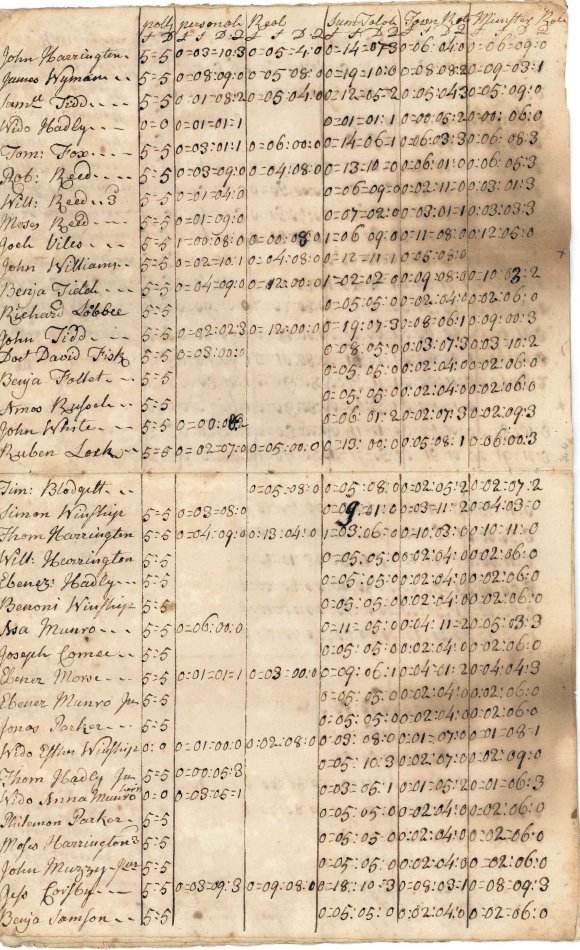 polls personal Real Sum Total Town Rate Minister Rate
£ D £ S D Q £ S D Q £ S D Q £ S D Q £ S D Q
John Harrington 5=5 0=03=10:3 0=05=4:0 0=14=07=3 0:06:04:0 0=06=09:0
James Wyman 5=5 0=08:09:0 0=05:08:0 0=19=10:0 0=08:08:2 0=09=03:1
Samll Tidd 5=5 0=01=08:2 0=05:04:0 0=12=05=2 0=05:04:3 0=05:09:0
Wido Hadly 0=0 0=01=01=1 0=01=01=1 0=00:05:2 0=01:06:0
Tom: Fox 5=5 0=03:01:1 0=06:00:0 0=14=06=1 0=06:03:3 0=06:08:3
Rob: Reed 5=5 0=03=09:0 0=04:08:0 0=13=10=0 0=06:01:0 0=06:05:3
Will: Reed 3d 5=5 0=01=04:0 0=06=09=0 0=02:11:0 0=03:01:3
Moses Reed 5=5 0=01=09:0 0=07=02:0 0=03:01=1 0=03:03:3
Joel Viles 5=5 1=00:08:0 0=00:08:0 1=06:09:0 0=11=08:0 0=12:05:0
John Williams 5=5 0=02=10:1 0=04:08:0 0=12=11=1 0=05:08:0
Benja Field 5=5 0=04=09:0 0=12:00:0 1=02=02:0 0=09:08:0 0=10:03:2
Richard Lobbee 5=5 0=05:05:0 0=02:04:0 0=02:06:0
John Tidd 5=5 0=02=02:3 0=12:00:0 0=19:07:3 0=08:06:1 0=09:00:3
Doct David Fisk 5=5 0=03:00:0 0=08:05:0 0=03:07:3 0=03:10:2
Benja Follet 5=5 0=05:05:0 0=02:04:0 0=02:06:0
Amos Russell 5=5 0=05:05:0 0=02:04:0 0=02:06:0
John White 5=5 0=00:08:2 0=06:01:2 0=02:07:3 0=02:09:3
Ruben Lock 5=5 0=02=07:0 0=05:00:0 0=13:00:0 0=05:08:1 0=06:00:3
Tim: Blodgett 0=05:08:0 0=05:08:0 0=02:05:2 0=02:07:2
Simon Winship 5=5 0=03=08:0 0=9:01:0 0=03=11:2 0=04:03:0
Thom Harrington 5=5 0=04:09:0 0=13:04:0 1=03:06=0 0=10:03:0 0=10:11:0
Will: Hearrington 5=5 0=05:05:0 0=02:04:0 0=02:06:0
Ebenez: Hadly 5=5 0=05=05:0 0=02:04:0 0=02:06:0
Benoni Winship 5=5 0=05:05:0 0=02:04:0 0=02:06:0
Asa Munro 5=5 0=06:00:0 0=11=05:0 0=04:11=2 0=05:03:3
Joseph Comee 5=5 0=05:05:0 0=02:04:0 0=02:06:0
Ebener Morse 5=5 0=01=01=1 0=03=00:0 0=09:06:1 0=04=01:2 0=04:04:3
Ebener Munro Jun 5=5 0=05:05:0 0=02:04:0 0=02:06:0
Jonas Parker 5=5 0=05:05:0 0=02:04:0 0=02:06:0
Wido Esther Winship 0:0 0=01=00:0 0:02:08:0 0=03:08:0 0=01=07:0 0=01=08=1
Thom Hadly Jun 5=5 0=00:05:3 0=05:10:3 0=02:07:0 0=02:09:0
Wido Anna Munro 0=0 0=03:05=1 0=03=05:1 0=01=05:2 0=01=06:3
Philemon Parker 5=5 0=05:05:0 0=02:04:0 0=02=06:0
Moses Harrington 3d 5=5 0=05:05:0 0=02:04:0 0=02=06:0
John Muzzy Jur 5=5 0=05=05:0 0=02:04:0 0=02:06:0
Jess Corsby 5=5 0=03=09:3 0=09:08:0 0=18:10=3 0=08:03=1 0=08:09:3
Benja Samson 5=5 0=05:05:0 0=02:04:0 0=02=06:0